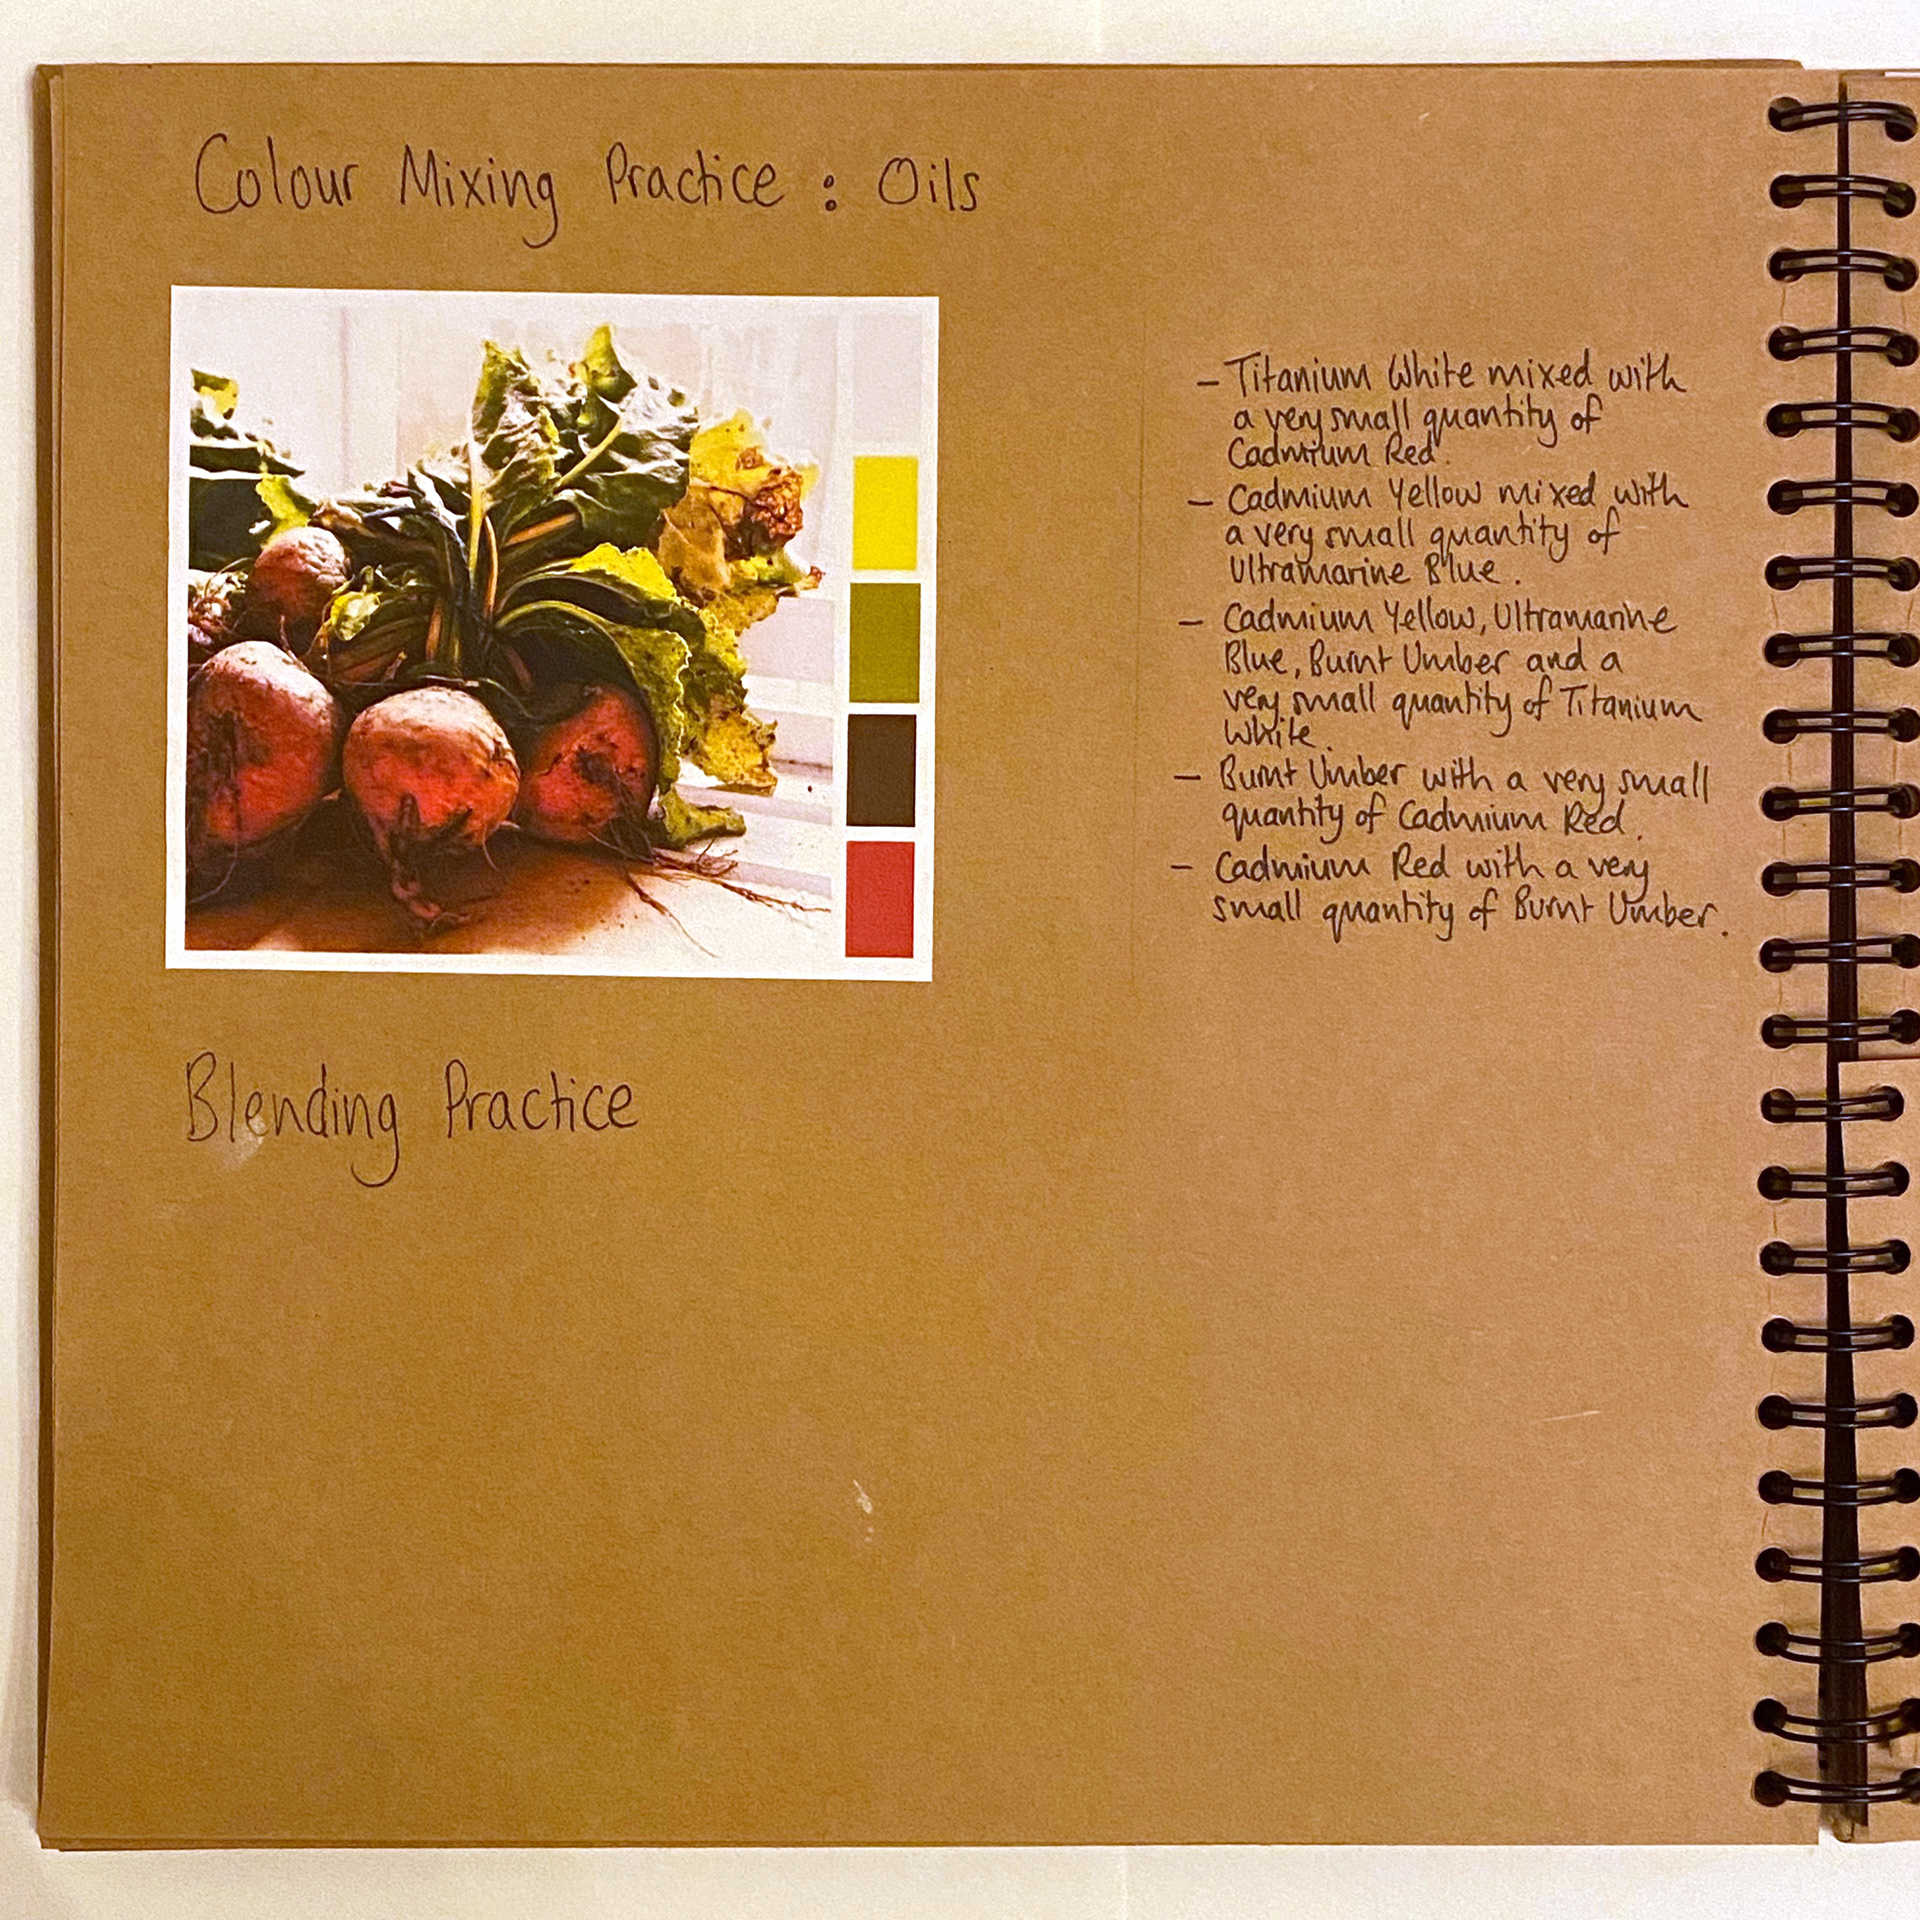 Colour Mixing Practice : Oils
– Titanium White mixed with
a very small quantity of
Cadmium Red.
– Cadmium Yellow mixed with
a very small quantity of
Ultramarine Blue.
– Cadmium Yellow, Ultramarine
Blue, Burnt Umber and a
very small quantity of Titanium
White.
– Burnt Umber with a very small
quantity of Cadmium Red.
– Cadmium Red with a very
small quantity of Burnt Umber.
Blending Practice